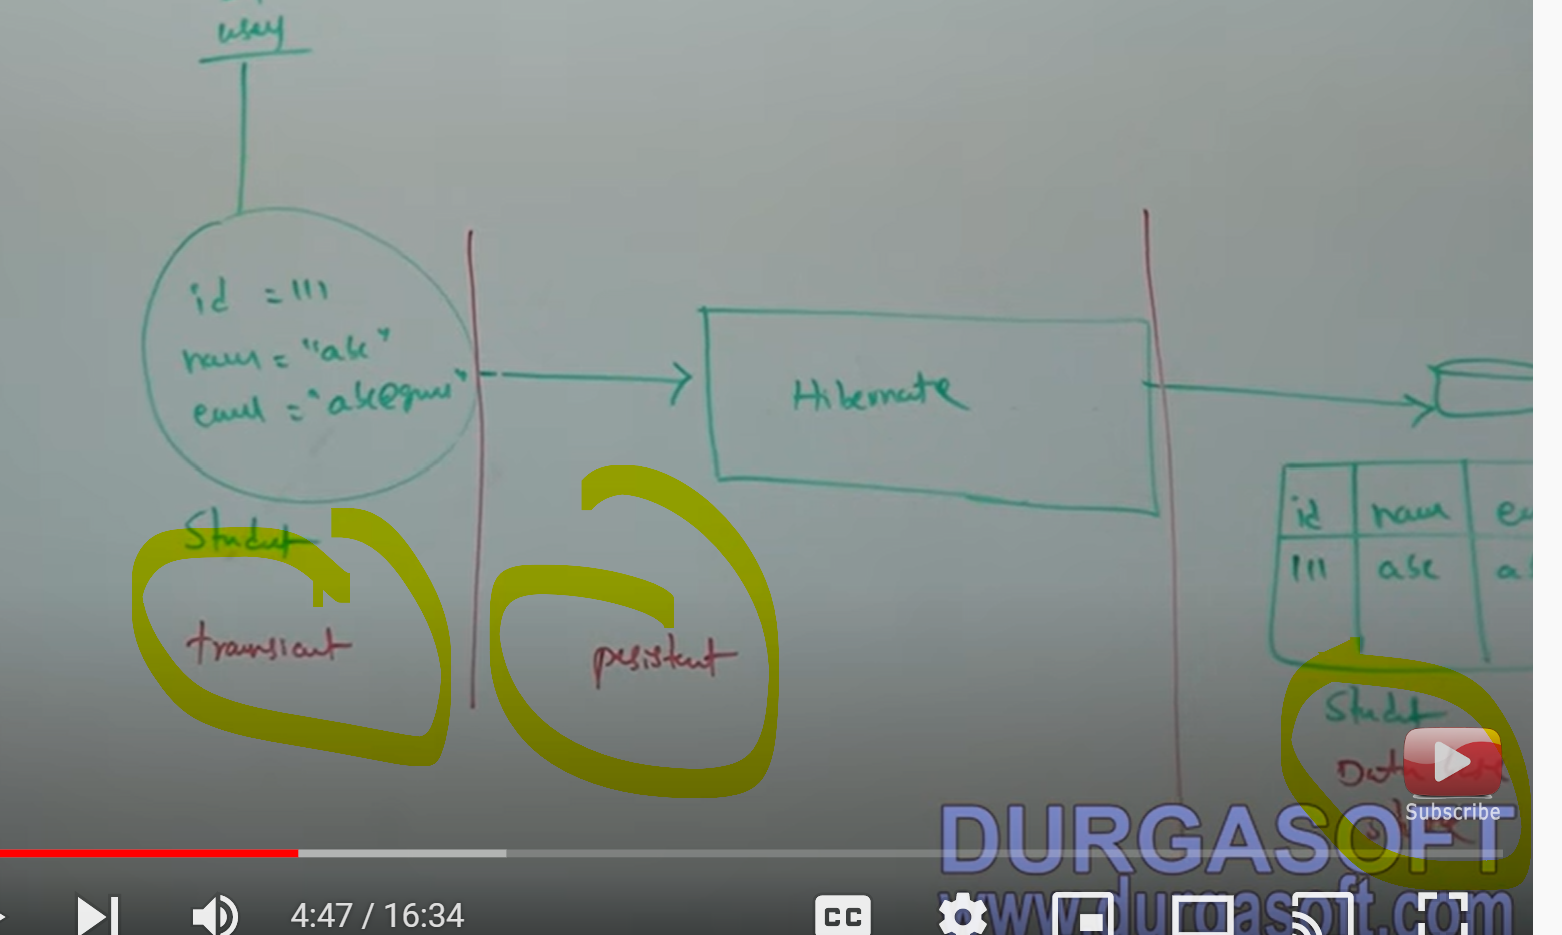 user
id = 111
name = "abc"
email = "abc@gmail"
Student
transient
persistent
Hibernate
id name
111 abc
Student
Subscribe
DURGASOFT
www.durgasoft.com
4:47 / 16:34
CC